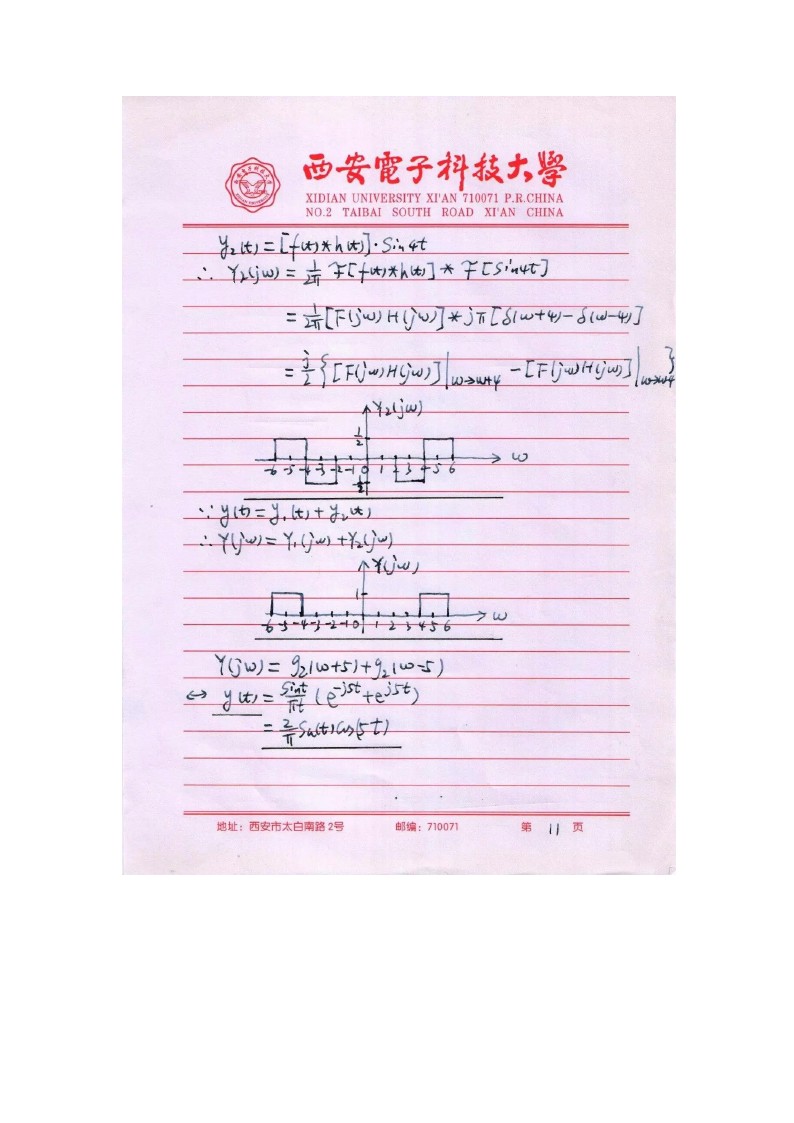 西安電子科技大學
XIDIAN UNIVERSITY XI'AN 710071 P.R.CHINA
NO.2 TAIBAI SOUTH ROAD XI'AN CHINA
y₂(t) = [f(t)*h(t)]·Sin4t
∴ Y₂(jω) = 1/2π F[f(t)*h(t)] * F[Sin4t]
= 1/2π [F(jω)H(jω)] * jπ[δ(ω+4)-δ(ω-4)]
= j/2 {[F(jω)H(jω)]|ω→ω+4 - [F(jω)H(jω)]|ω→ω-4}
Y₂(jω)
1/2
-6 -5 -4 -3 -2 -1 0 1 2 3 4 5 6 ω
-1/2
∵ y(t) = y₁(t) + y₂(t)
∴ Y(jω) = Y₁(jω) + Y₂(jω)
Y(jω)
1
-6 -5 -4 -3 -2 -1 0 1 2 3 4 5 6 ω
Y(jω) = g₂(ω+5) + g₂(ω-5)
↔ y(t) = Sint/πt (e^-j5t + e^j5t)
= 2/π Sa(t)Cos(5t)
地址：西安市太白南路2号 邮编：710071 第 11 页